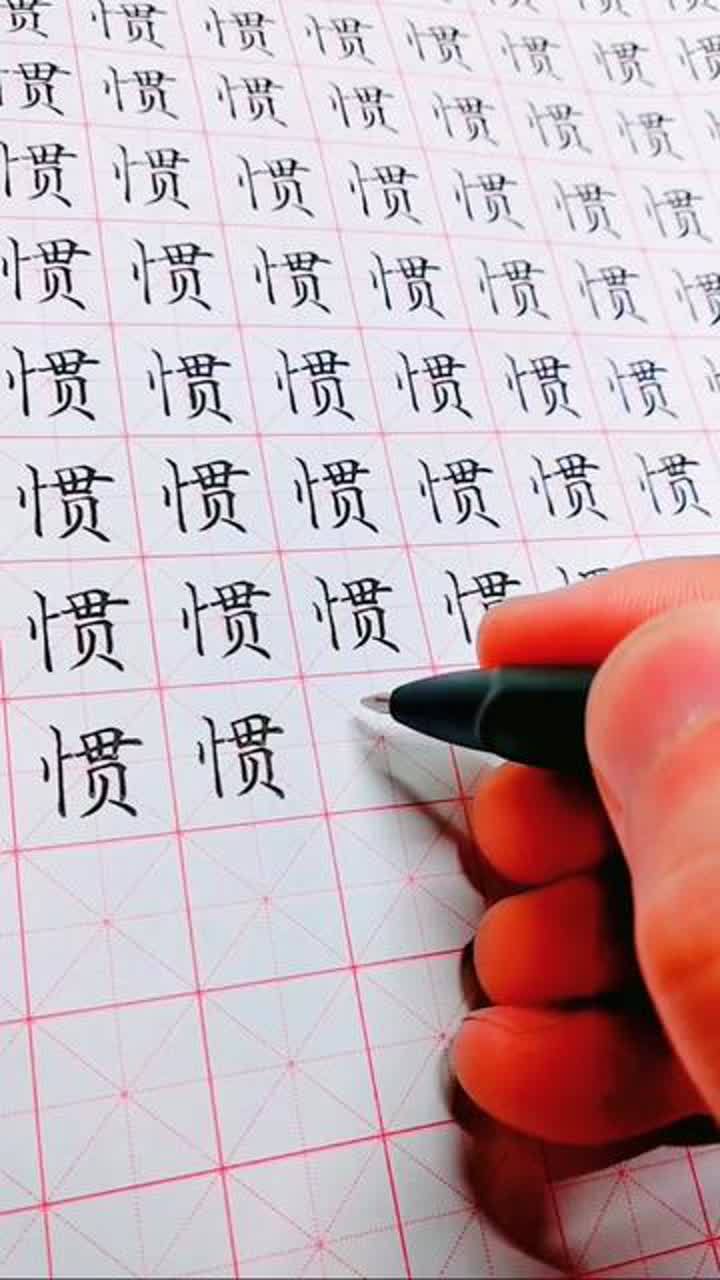 惯惯惯惯惯惯惯惯
惯惯惯惯惯惯惯
惯惯惯惯惯惯惯
惯惯惯惯惯惯惯
惯惯惯惯惯惯
惯惯惯惯惯惯
惯惯惯惯
惯惯